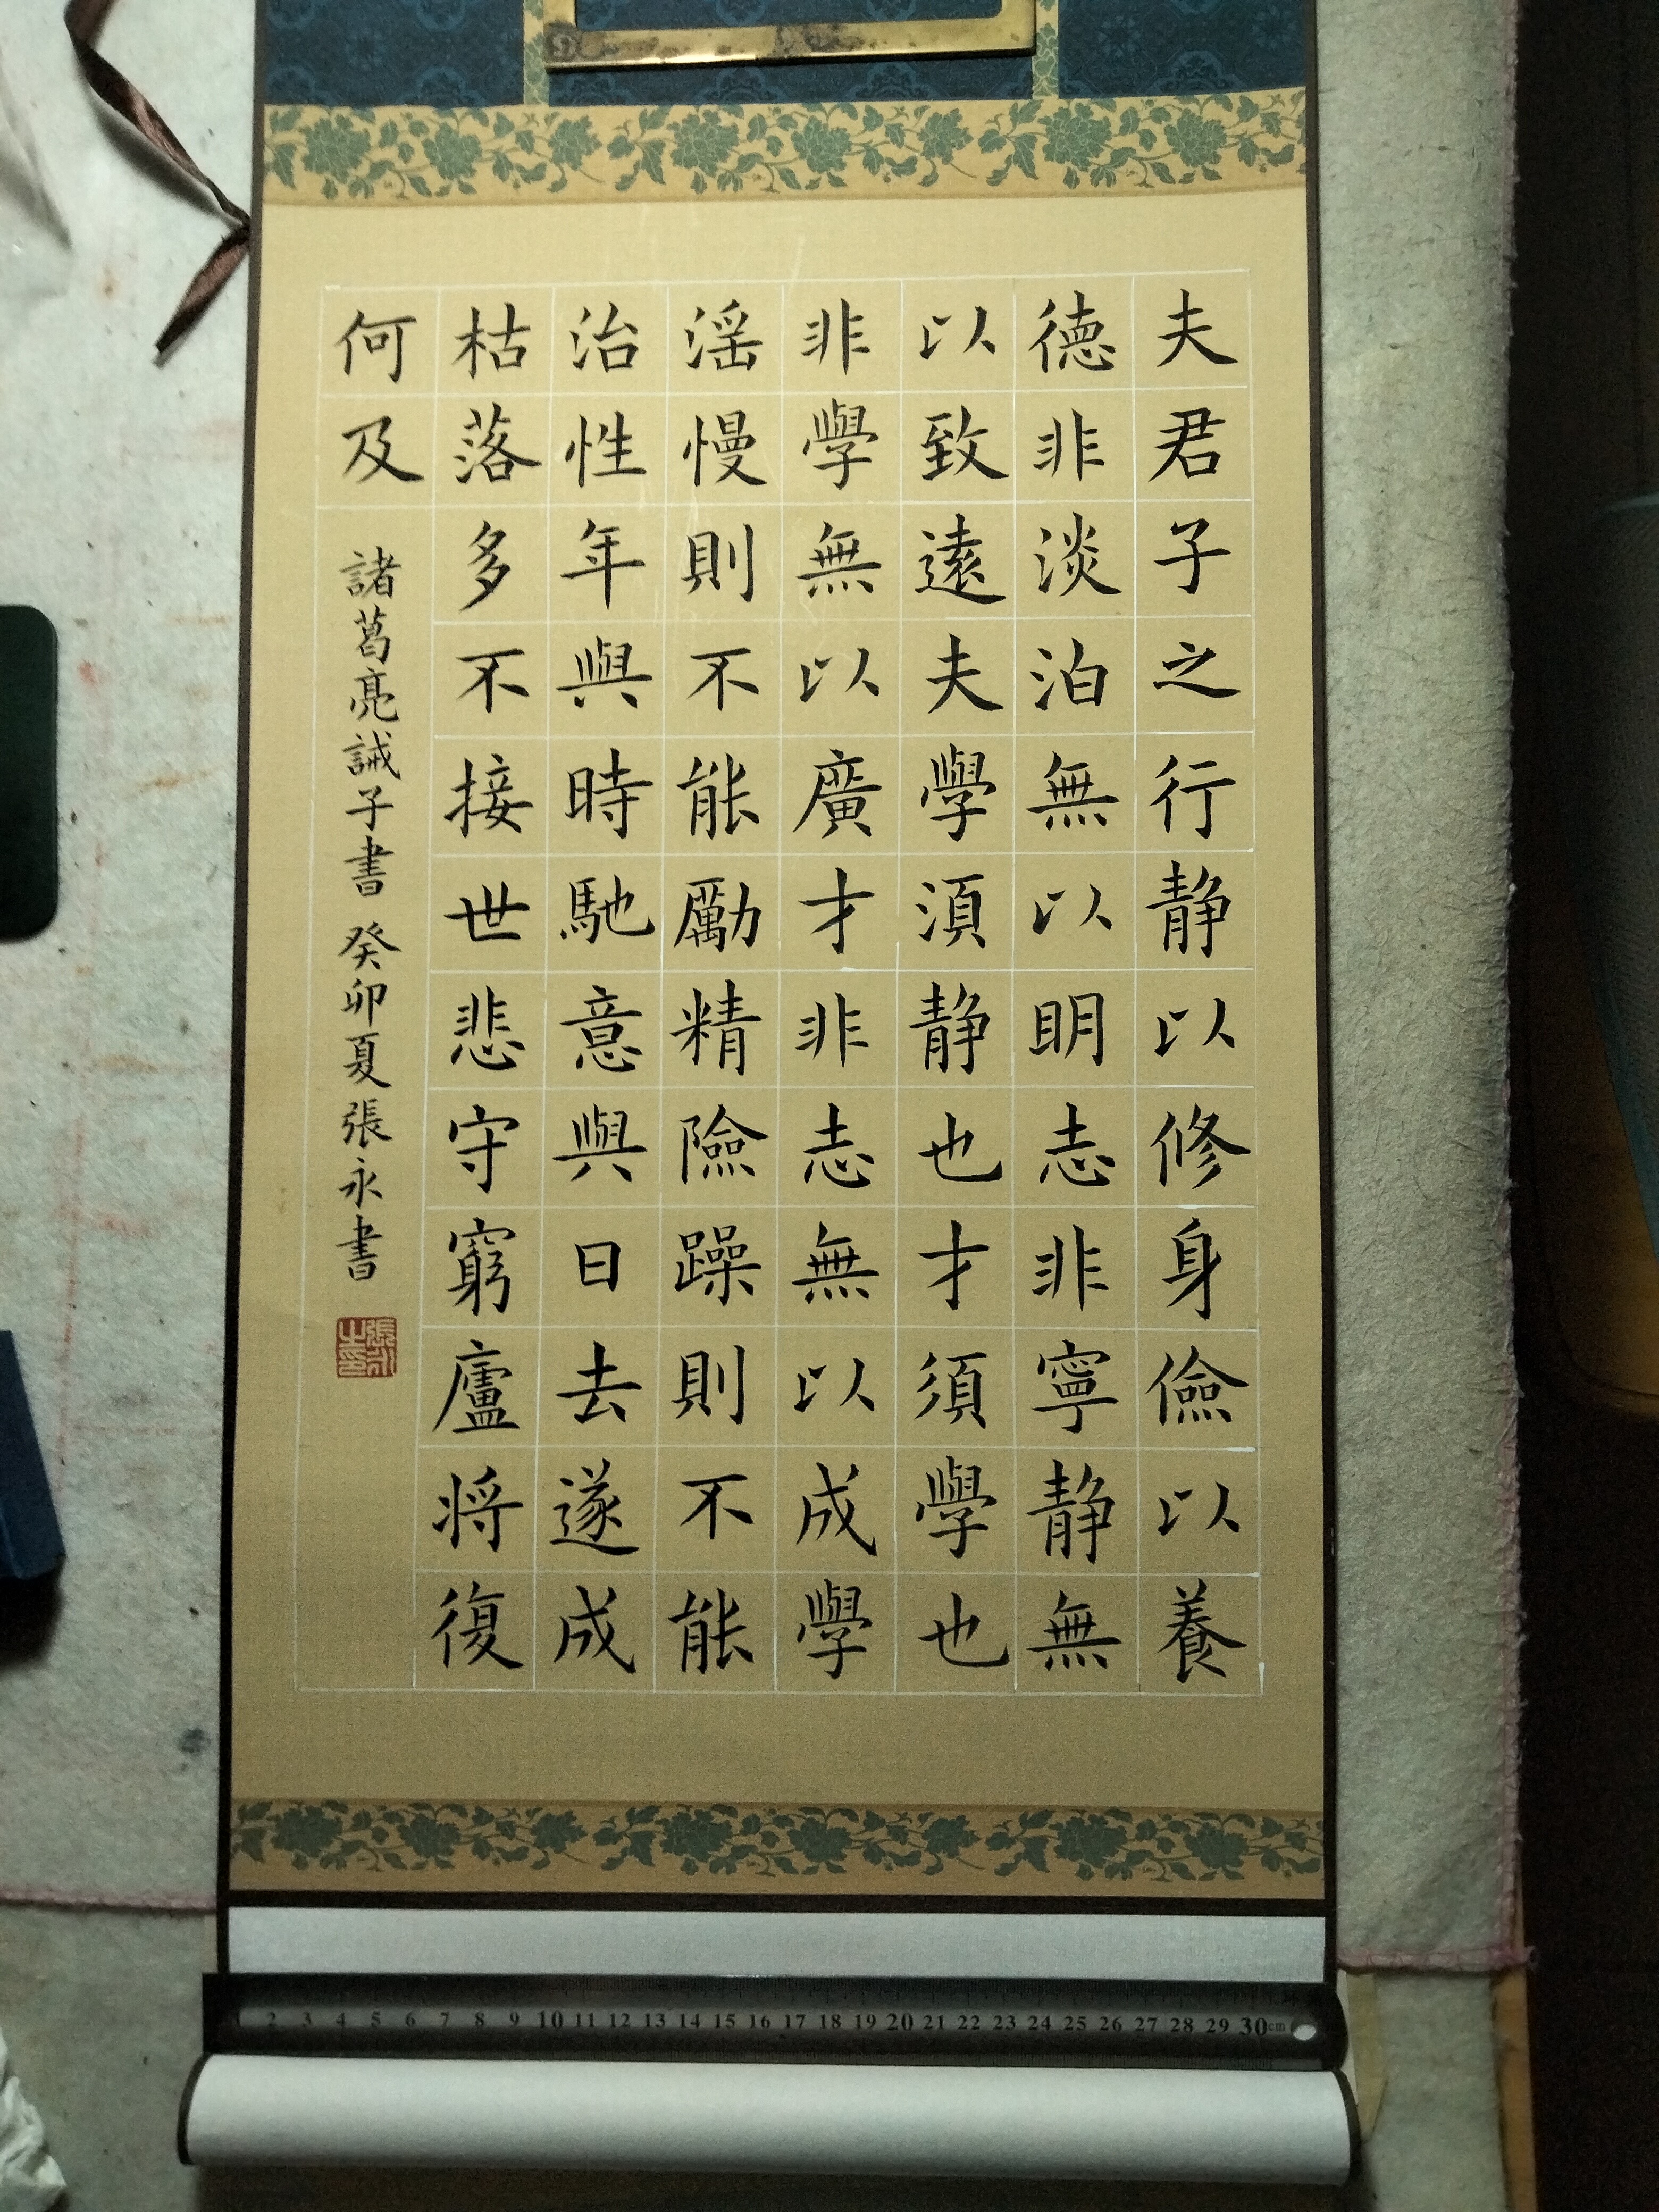 夫君子之行静以修身儉以養
徳非淡泊無以明志非寧静無
以致遠夫學須静也才須學也
非學無以廣才非志無以成學
淫慢則不能勵精險躁則不能
治性年與時馳意與日去遂成
枯落多不接世悲守窮廬将復
何及
諸葛亮誡子書 癸卯夏張永書
張永之印
1 2 3 4 5 6 7 8 9 10 11 12 13 14 15 16 17 18 19 20 21 22 23 24 25 26 27 28 29 30cm